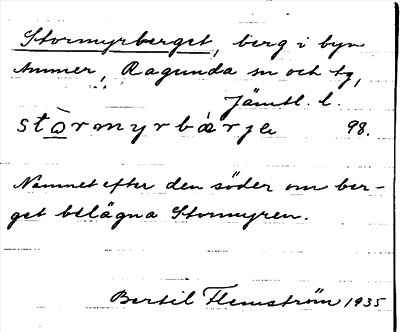 Stormyrberget, berg i byn
Ammer, Ragunda sn och tg,
Jämtl. l.
stòrmyrbàrje 98.
Namnet efter den söder om ber-
get belägna Stormyren.
Bertil Flemström 1935